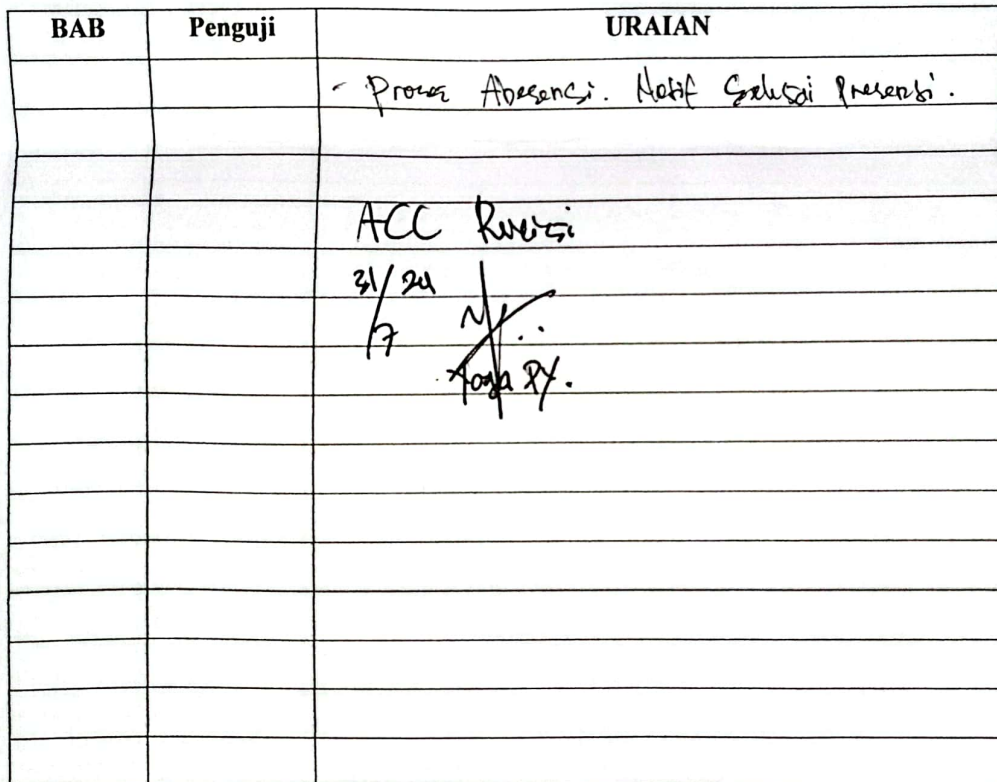 BAB Penguji URAIAN
- Proses Absensi. Notif Selesai Presensi.
ACC Revisi
31/7 24
Yoga PY.